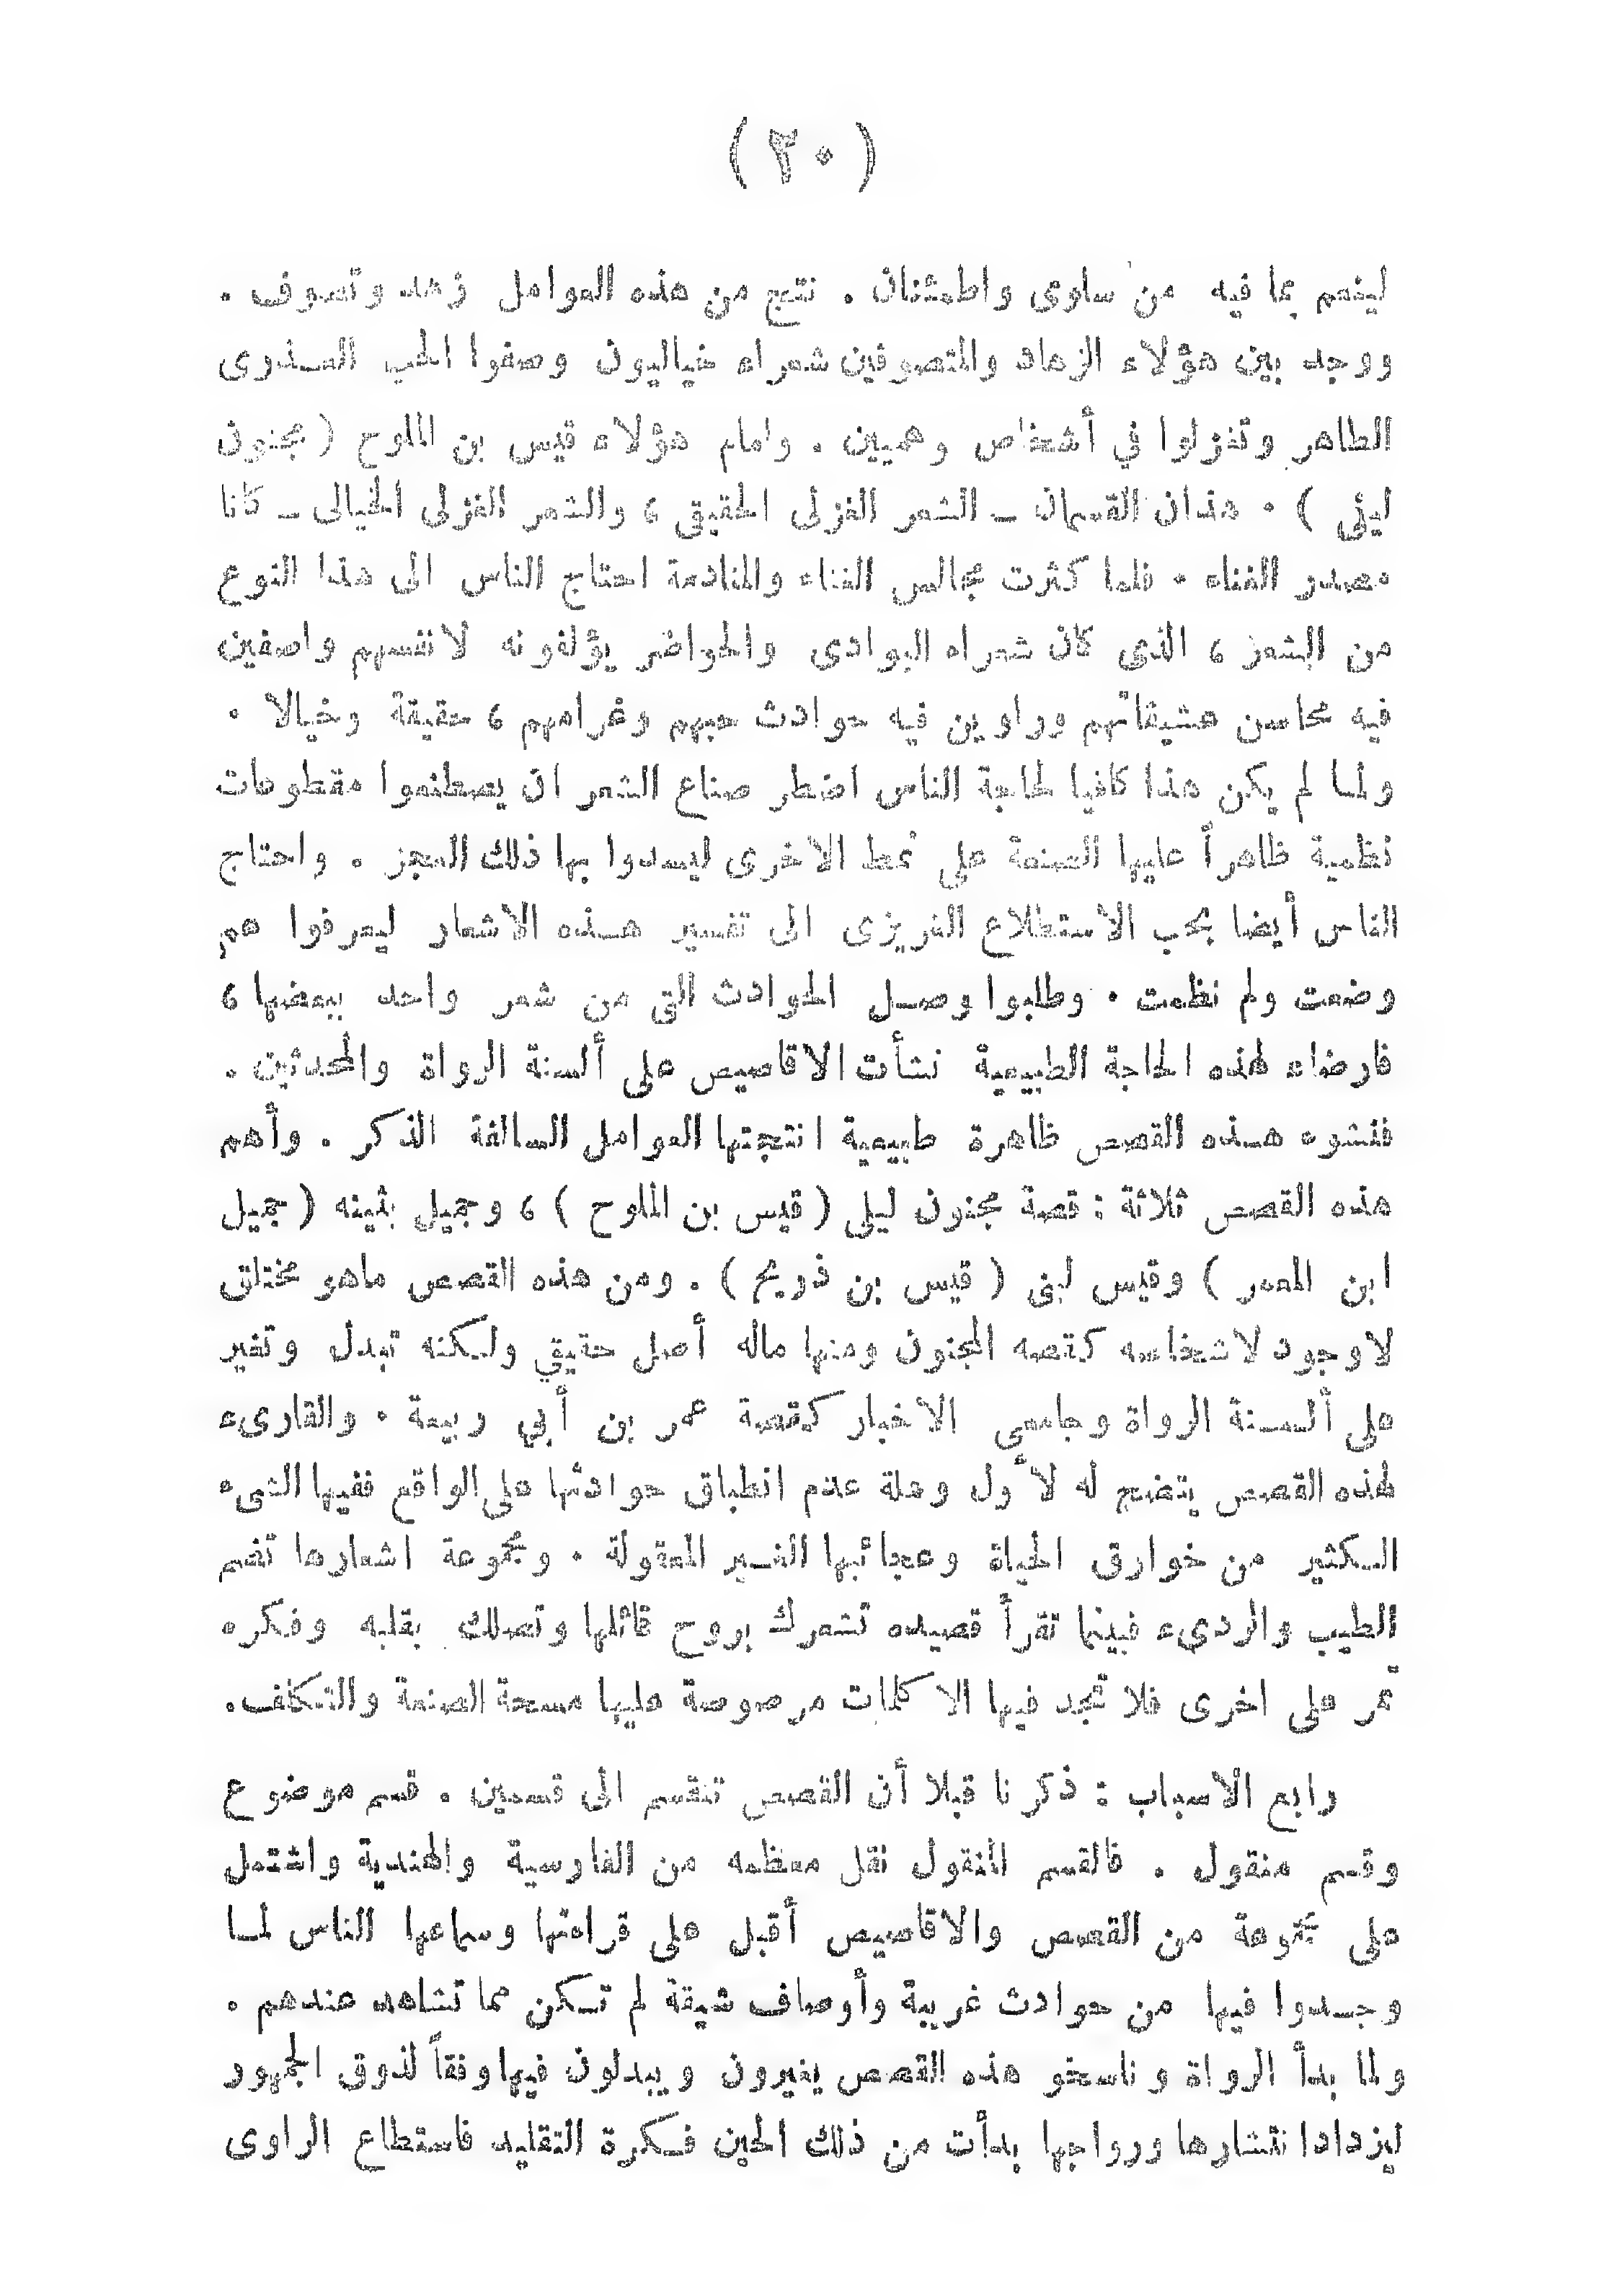 ( ٣٠ )
لينعم بما فيه من سلوى واطمئنان . نتج من هذه العوامل زهد وتصوف .
ووجد بين هؤلاء الزهاد والمتصوفين شعراء خياليون وصفوا الحب العذرى
الطاهر وتغزلوا في أشخاص وهميين . وامام هؤلاء قيس بن الملوح ( مجنون
ليلى ) . هذان القسمان ـ الشعر الغزلى الحقيقى ، والشعر الغزلى الخيالى ـ كانا
مصدر الغناء . فلما كثرت مجالس الغناء والمنادمة احتاج الناس الى هذا النوع
من الشعر ، الذى كان شعراء البوادى والحواضر يؤلفونه لانفسهم واصفين
فيه محاسن عشيقاتهم وراوين فيه حوادث حبهم وغرامهم ، حقيقة وخيالا .
ولما لم يكن هذا كافيا لحاجة الناس اضطر صناع الشعر ان يصطنعوا مقطوعات
نظمية ظاهراً عليها الصنعة على نمط الاخرى ليسدوا بها ذلك العجز . واحتاج
الناس أيضا بحب الاستطلاع الغريزى الى تفسير هذه الاشعار ليعرفوا هم
وضعت ولم نظمت . وطلبوا وصل الحوادث التى من شعر واحد ببعضها ،
فارضاء لهذه الحاجة الطبيعية نشأت الاقاصيص على ألسنة الرواة والمحدثين .
فنشوء هذه القصص ظاهرة طبيعية انتجتها العوامل السالفة الذكر . وأهم
هذه القصص ثلاثة : قصة مجنون ليلى ( قيس بن الملوح ) ، وجميل بثينه ( جميل
ابن المعمر ) وقيس لبنى ( قيس بن ذريح ) . ومن هذه القصص ماهو مختلق
لاوجود لاشخاصه كقصه المجنون ومنها ماله أصل حقيقي ولكنه تبدل وتغير
على ألسنة الرواة وجامعي الاخبار كقصة عمر بن أبي ربيعة . والقارىء
لهذه القصص يتضح له لأول وهلة عدم انطباق حوادثها على الواقع ففيها الشىء
الكثير من خوارق الحياة وعجائبها الغير المعقولة . ومجموعة اشعارها تضم
الطيب والردىء فبينما تقرأ قصيده تشعرك بروح قائلها وتصلك بقلبه وفكره
تمر على اخرى فلا تجد فيها الا كلمات مرصوصة عليها مسحة الصنعة والتكلف.
رابع الاسباب : ذكرنا قبلا أن القصص تنقسم الى قسمين . قسم موضوع
وقسم منقول . فالقسم المنقول نقل معظمه من الفارسية والهندية واشتمل
على مجموعة من القصص والاقاصيص أقبل على قراءتها وسماعها الناس لما
وجدوا فيها من حوادث غريبة وأوصاف شيقة لم تكن مما تشاهد عندهم .
ولما بدأ الرواة وناسخو هذه القصص يغيرون ويبدلون فيها وفقاً لذوق الجمهور
ليزداد انتشارها ورواجها بدأت من ذلك الحين فكرة التقليد فاستطاع الراوى